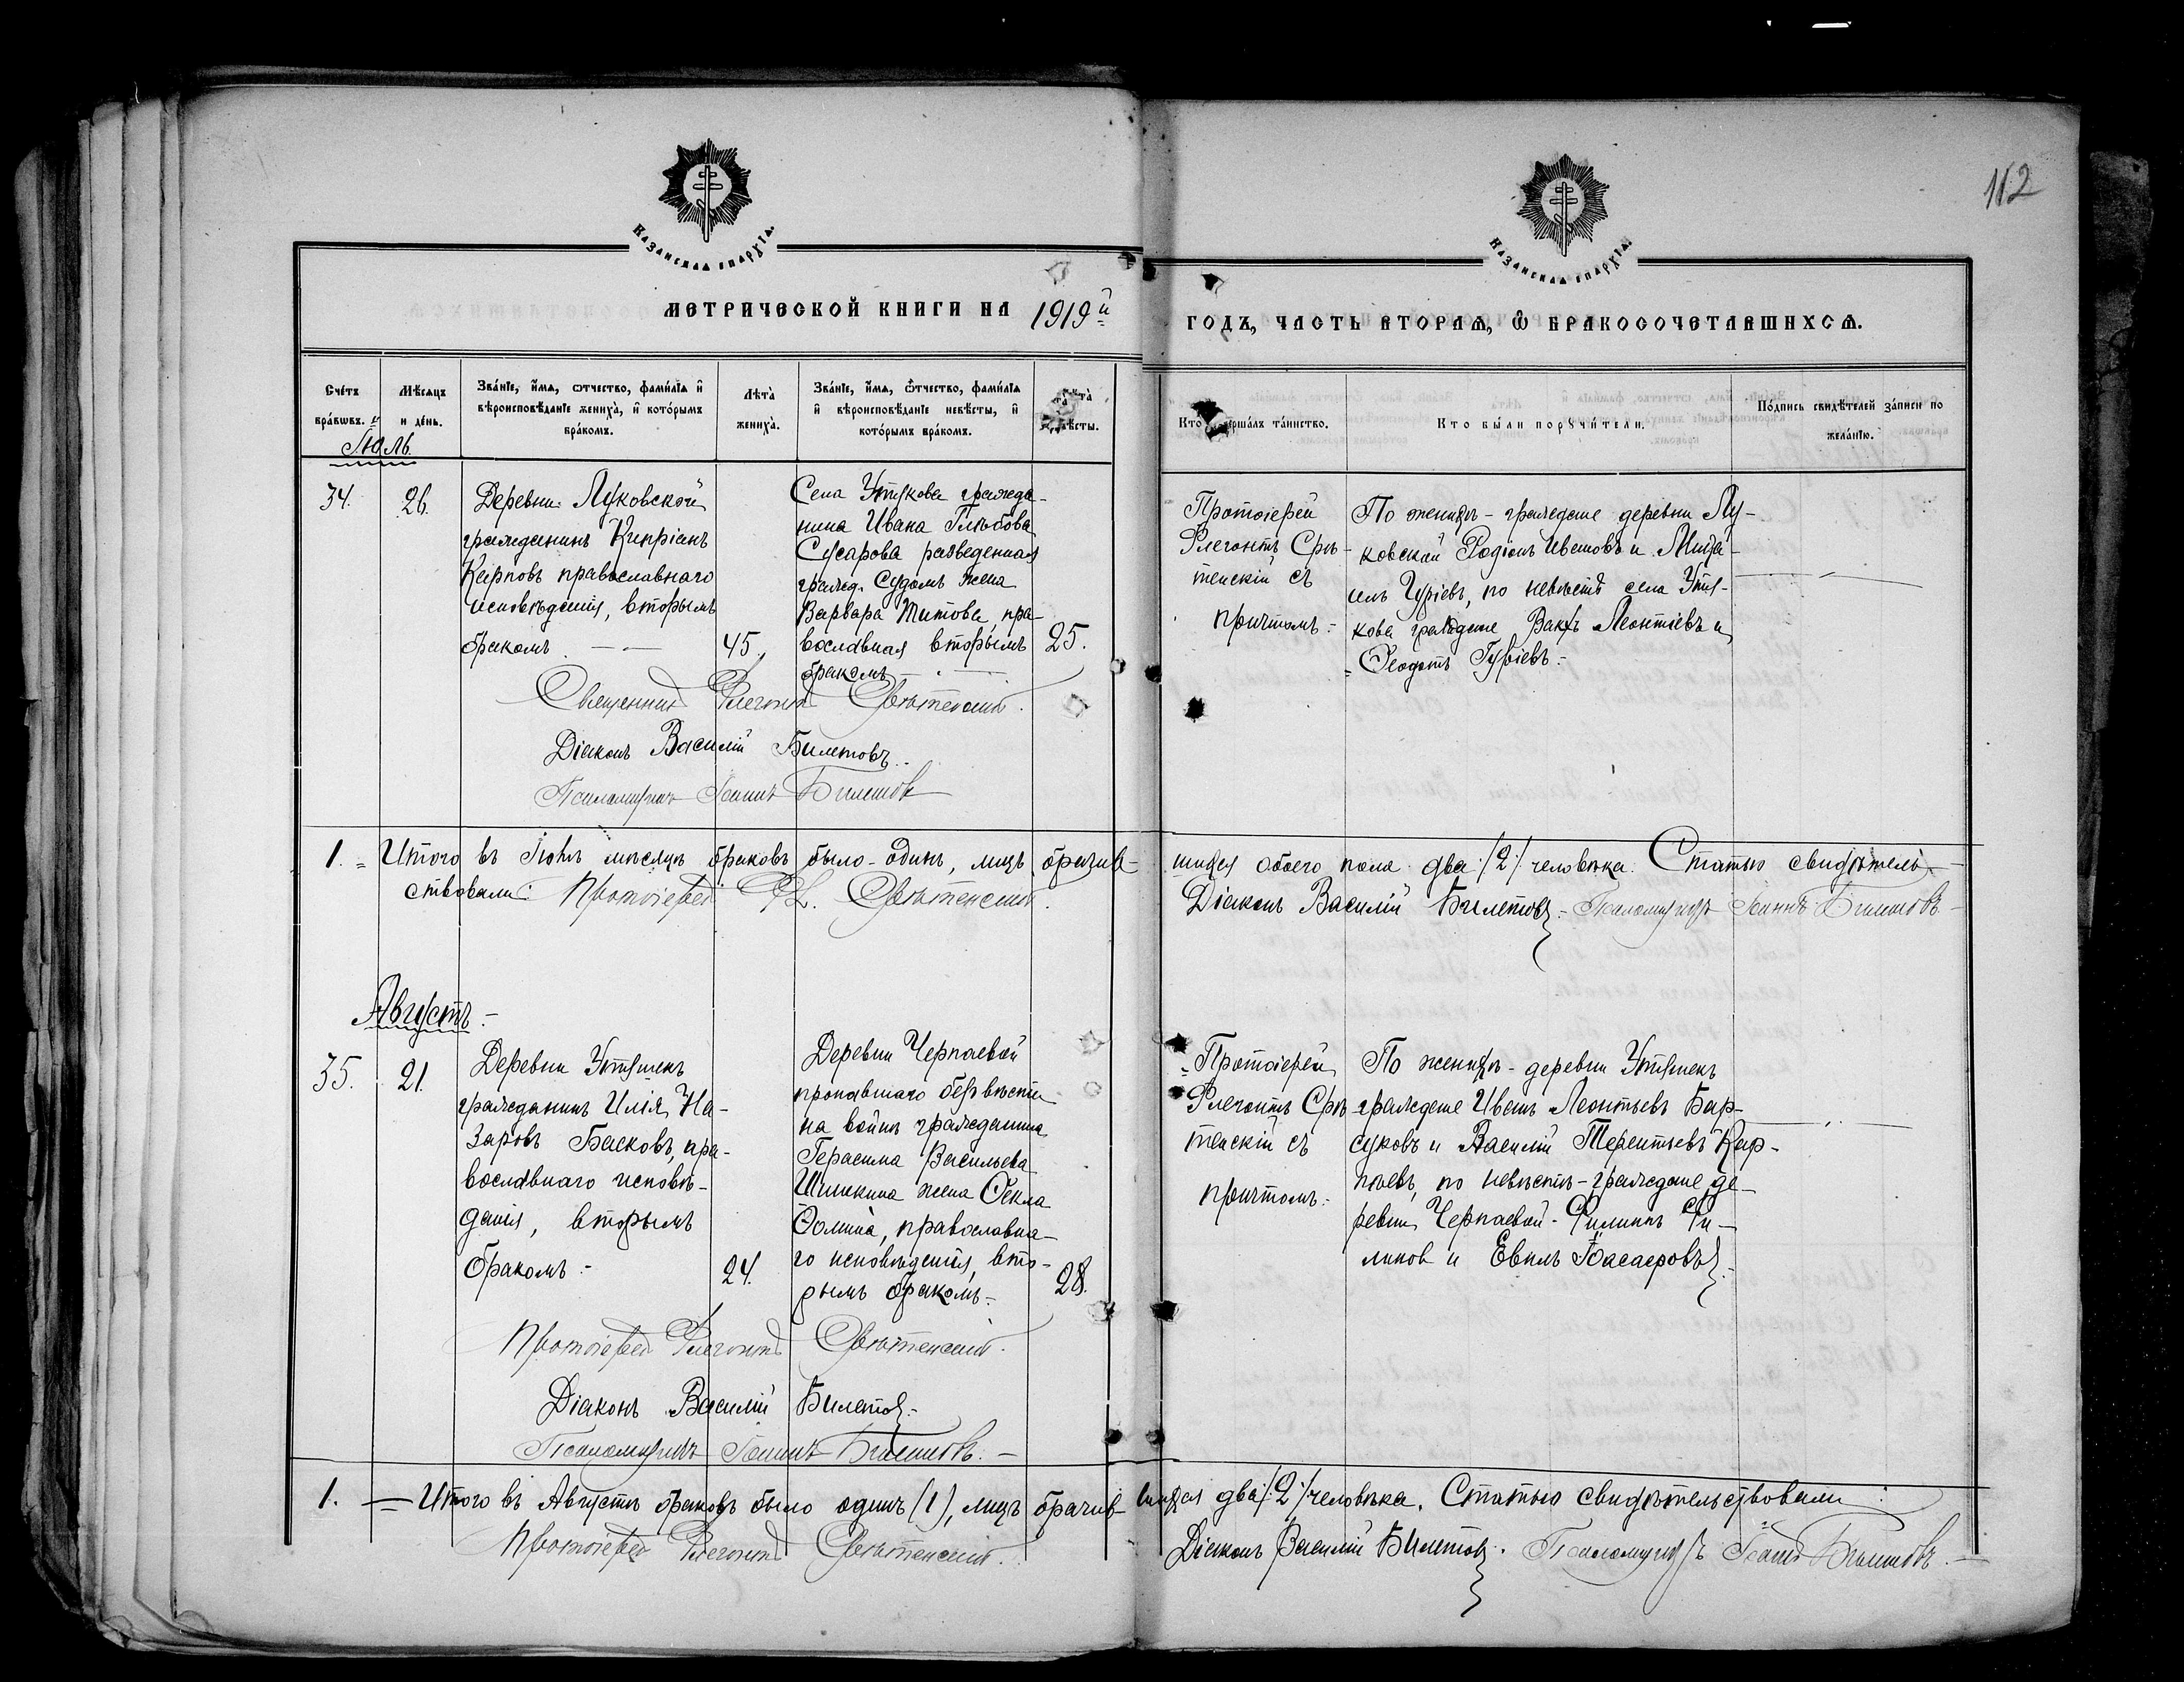 112
Казанская епархія.
Казанская епархія.
МЕТРИЧЕСКОЙ КНИГИ НА 1919й
ГОДЪ, ЧАСТЬ ВТОРАЯ, Ѡ БРАКОСОЧЕТАВШИХСЯ.
Счетъ
браковъ.
Мѣсяцъ
и день.
Званіе, имя, отчество, фамилія и
вѣроисповѣданіе жениха, и которымъ
бракомъ.
Лѣта
жениха.
Званіе, имя, отчество, фамилія
и вѣроисповѣданіе невѣсты, и
которымъ бракомъ.
Лѣта
невѣсты.
Кто совершалъ таинство.
Кто были поручители.
Подпись свидѣтелей записи по
желанію.
Іюль.
34.
26.
Деревни Луковской
гражданинъ Кипріанъ
Карповъ православнаго
исповѣданія, вторымъ
бракомъ
45.
Села Утукова гражда-
нина Ивана Глѣбова
Сусарова разведенная
гражд. судомъ жена
Варвара Титова, пра-
вославная вторымъ
бракомъ
25.
Протоіерей
Флегонтъ Срѣ-
тенскій съ
причтомъ.
По женихѣ - граждане деревни Лу-
ковской Родіонъ Ивановъ и Миха-
илъ Гуріевъ, по невѣстѣ села Уту-
кова граждане Вакхъ Леонтіевъ и
Ѳеодотъ Гуріевъ.
Священникъ Флегонтъ Срѣтенскій.
Діаконъ Василій Билетовъ.
Псаломщикъ Іоаннъ Билетовъ
1. Итого въ Іюлѣ мѣсяцѣ браковъ было - одинъ, лицъ брачив-
шихся обоего пола два /2/ человѣка. Статью свидѣтель-
ствовали: Протоіерей Фл. Срѣтенскій.
Діаконъ Василій Билетовъ. Псаломщикъ Іоаннъ Билетовъ
Августъ.
35.
21.
Деревни Утяшекъ
гражданинъ Илія На-
заровъ Басковъ, пра-
вославнаго исповѣ-
данія, вторымъ
бракомъ
24.
Деревни Черпаевой
пропавшаго безвѣсти
на войнѣ гражданина
Герасима Васильева
Шишкина жена Ѳекла
Ѳомина, православна-
го исповѣданія, вто-
рымъ бракомъ.
28.
Протоіерей
Флегонтъ Срѣ-
тенскій съ
причтомъ.
По женихѣ - деревни Утяшекъ
граждане Иванъ Леонтьевъ Бар-
суковъ и Василій Терентьевъ Кар-
пѣевъ, по невѣстѣ - граждане де-
ревни Черпаевой - Филиппъ Фи-
липов и
Протоіерей Флегонтъ Срѣтенскій.
Діаконъ Василій Билетовъ
Псаломщикъ Іоаннъ Билетовъ.
1. Итого въ Августѣ браковъ было одинъ (1), лицъ брачив-
шихся два /2/ человѣка. Статью свидѣтельствовали:
Протоіерей Флегонтъ Срѣтенскій.
Діаконъ Василій Билетовъ. Псаломщикъ Іоаннъ Билетовъ.